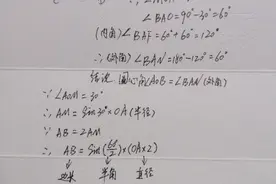 ∠BAO=90°-30°=60°
(内角)∠BAF=60°+60°=120°
∴(外角)∠BAN=180°-120°=60°
结论 圆心角∠AOB=∠BAN(外角)
∵ ∠AOM=30°
∴ AM=Sin30°×OA(半径)
∵ AB=2AM
∴ AB=Sin(60/2)×(OA×2)
↓ ↓ ↓
边长 半角 直径